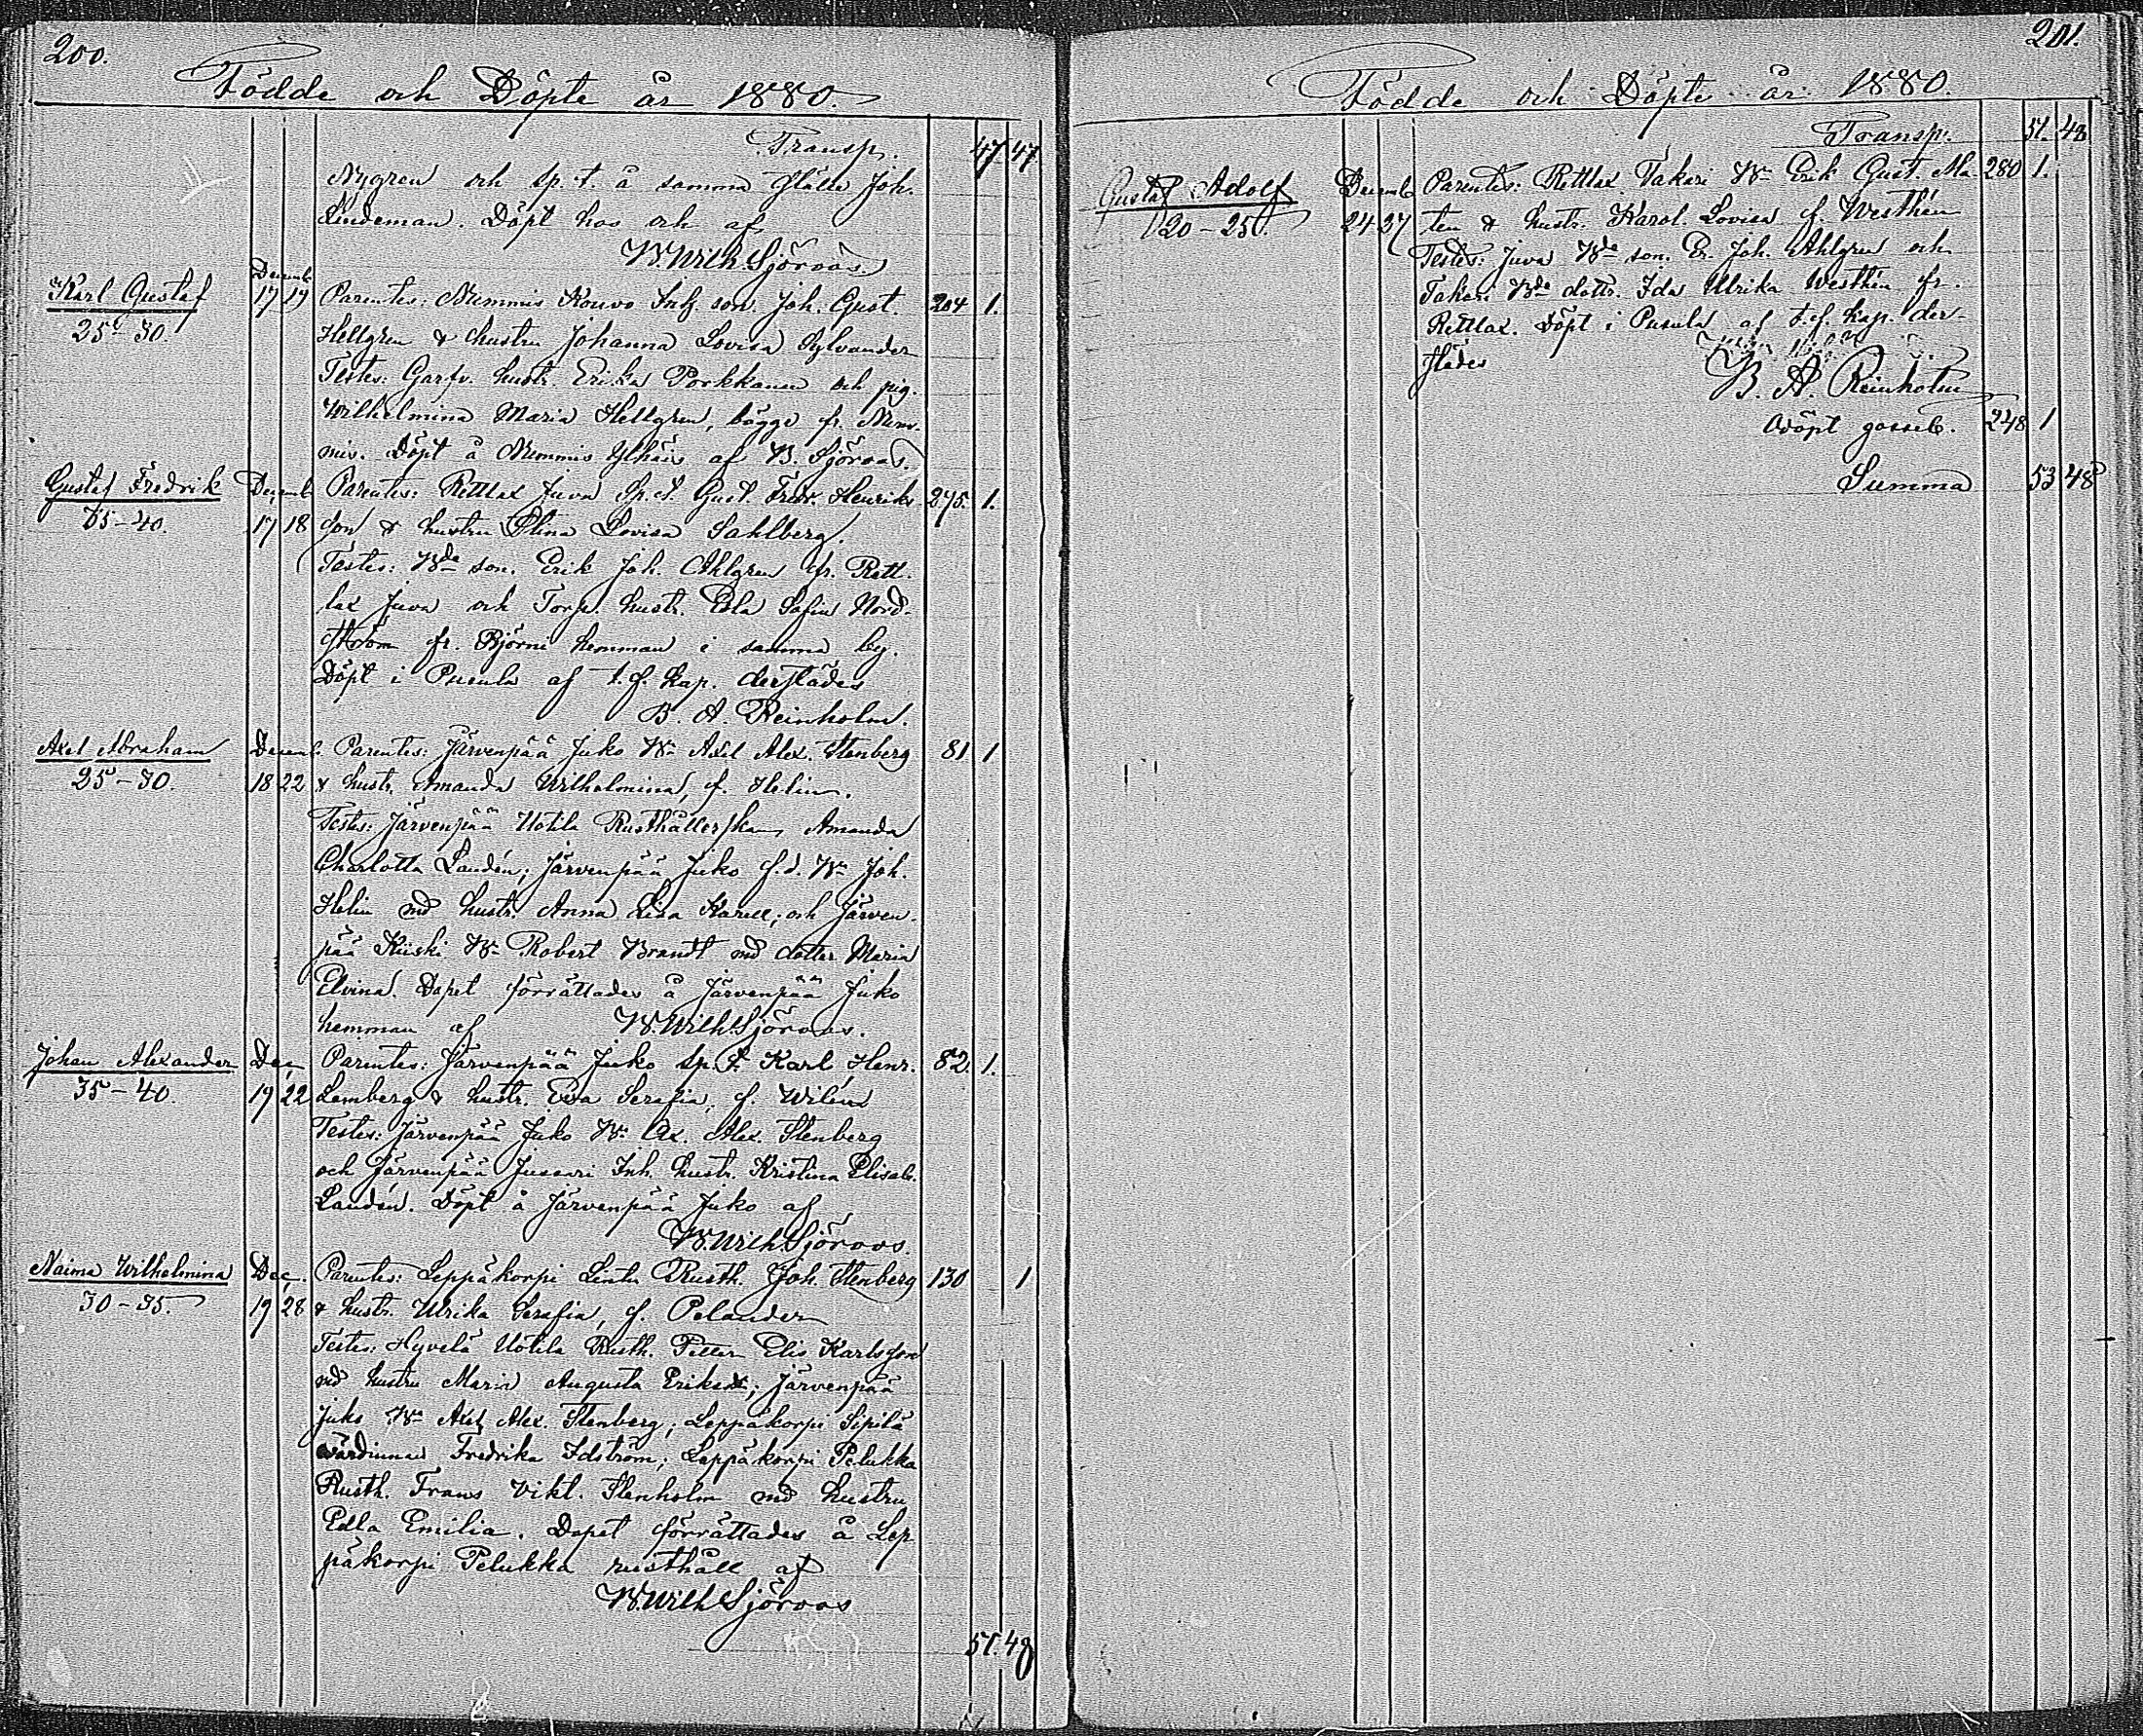 200.
Födde och Döpte år 1880.
Transp. 47 47.
Nygren och sp. t. å samma ställe Joh.
Lindeman. Döpt hos och af
W. Wilh. Sjöroos.
Karl Gustaf
25-30.
Decemb.
17 19
Parentes: Nummis Kouvo Inh. son. Joh. Gust. 204 1.
Hellgren & hustru Johanna Lovisa Sylvander
Testes: Garfv. hustr. Erika Porkkanen och pig.
Wilhelmina Maria Hellgren, bägge fr. Num-
mis. Döpt å Nummis af W. Sjöroos.
Gustaf Fredrik
35-40.
Decemb.
17 18
Parentes: Rettlax Juva Sp. t. Gust. Fredr. Henriks- 275. 1.
son & hustru Stina Lovisa Sahlberg.
Testes: Bde son. Erik Joh. Ahlgren fr. Rett-
lax Juva och Torp. hustr. Edla Sofia Nord-
ström fr. Björni hemman i samma by.
Döpt i Pusula af t. f. Kap. derstädes
B. A. Reinholm.
Axel Abraham
25-30.
Decemb.
18 22
Parentes: Järvenpää Juko Bn Axel Alex. Stenberg 81 1
& hustr. Amanda Wilhelmina, f. Helin.
Testes: Järvenpää Uotila Rusthållerskan Amanda
Charlotta Landén; Järvenpää Juko f.d. Bn Joh.
Helin md hustr. Anna Lisa Karell; och Järven-
pää Kiiski Bn Robert Brandt md dotter Maria
Elvina. Dopet förrättades å Järvenpää Juko
hemman af W. Wilh. Sjöroos.
Johan Alexander
35-40.
Dec.
19 22
Parentes: Järvenpää Juko Sp. t. Karl Henr. 82. 1.
Lemberg & hustr. Eva Serafia, f. Wilén
Testes: Järvenpää Juko Bn Ax. Alex. Stenberg
och Järvenpää Jussari Inh. hustr. Kristina Elisab.
Landén. Döpt å Järvenpää Juko af
W. Wilh. Sjöroos.
Naima Wilhelmina
30-35.
Dec.
19 28
Parentes: Leppäkorpi Lintu Rusth. Joh. Stenberg 130 1
& hustr. Ulrika Serafia, f. Pelander
Testes: Hyvelä Uotila Rusth. Petter Elis Karlsson
md hustru Maria Augusta Eriksd.; Järvenpää
Juko Bn Axel Alex. Stenberg; Leppäkorpi Sipilä
värdinnan Fredrika Idström; Leppäkorpi Pelukka
Rusth. Frans Vikt. Stenholm md hustru
Edla Emilia. Dopet förrättades å Lep-
päkorpi Pelukka rusthåll af
W. Wilh Sjöroos
51. 48
201.
Födde och Döpte år 1880.
Transp. 51. 48
Gustaf Adolf
20-25.
Decemb.
24 27
Parentes: Rettlax Takari Bn Erik Gust. Ma- 280 1.
ten & hustr. Karol. Lovisa f. Westhén
Testes: Juva Bde son. Er. Joh. Ahlgren och
Takari Bde dottr. Ida Ulrika Westhén fr.
Rettlax. Döpt i Pusula af t. f. Kap. der-
städes
B. A. Reinholm
Odöpt gosseb. 248 1
Summa 53 48